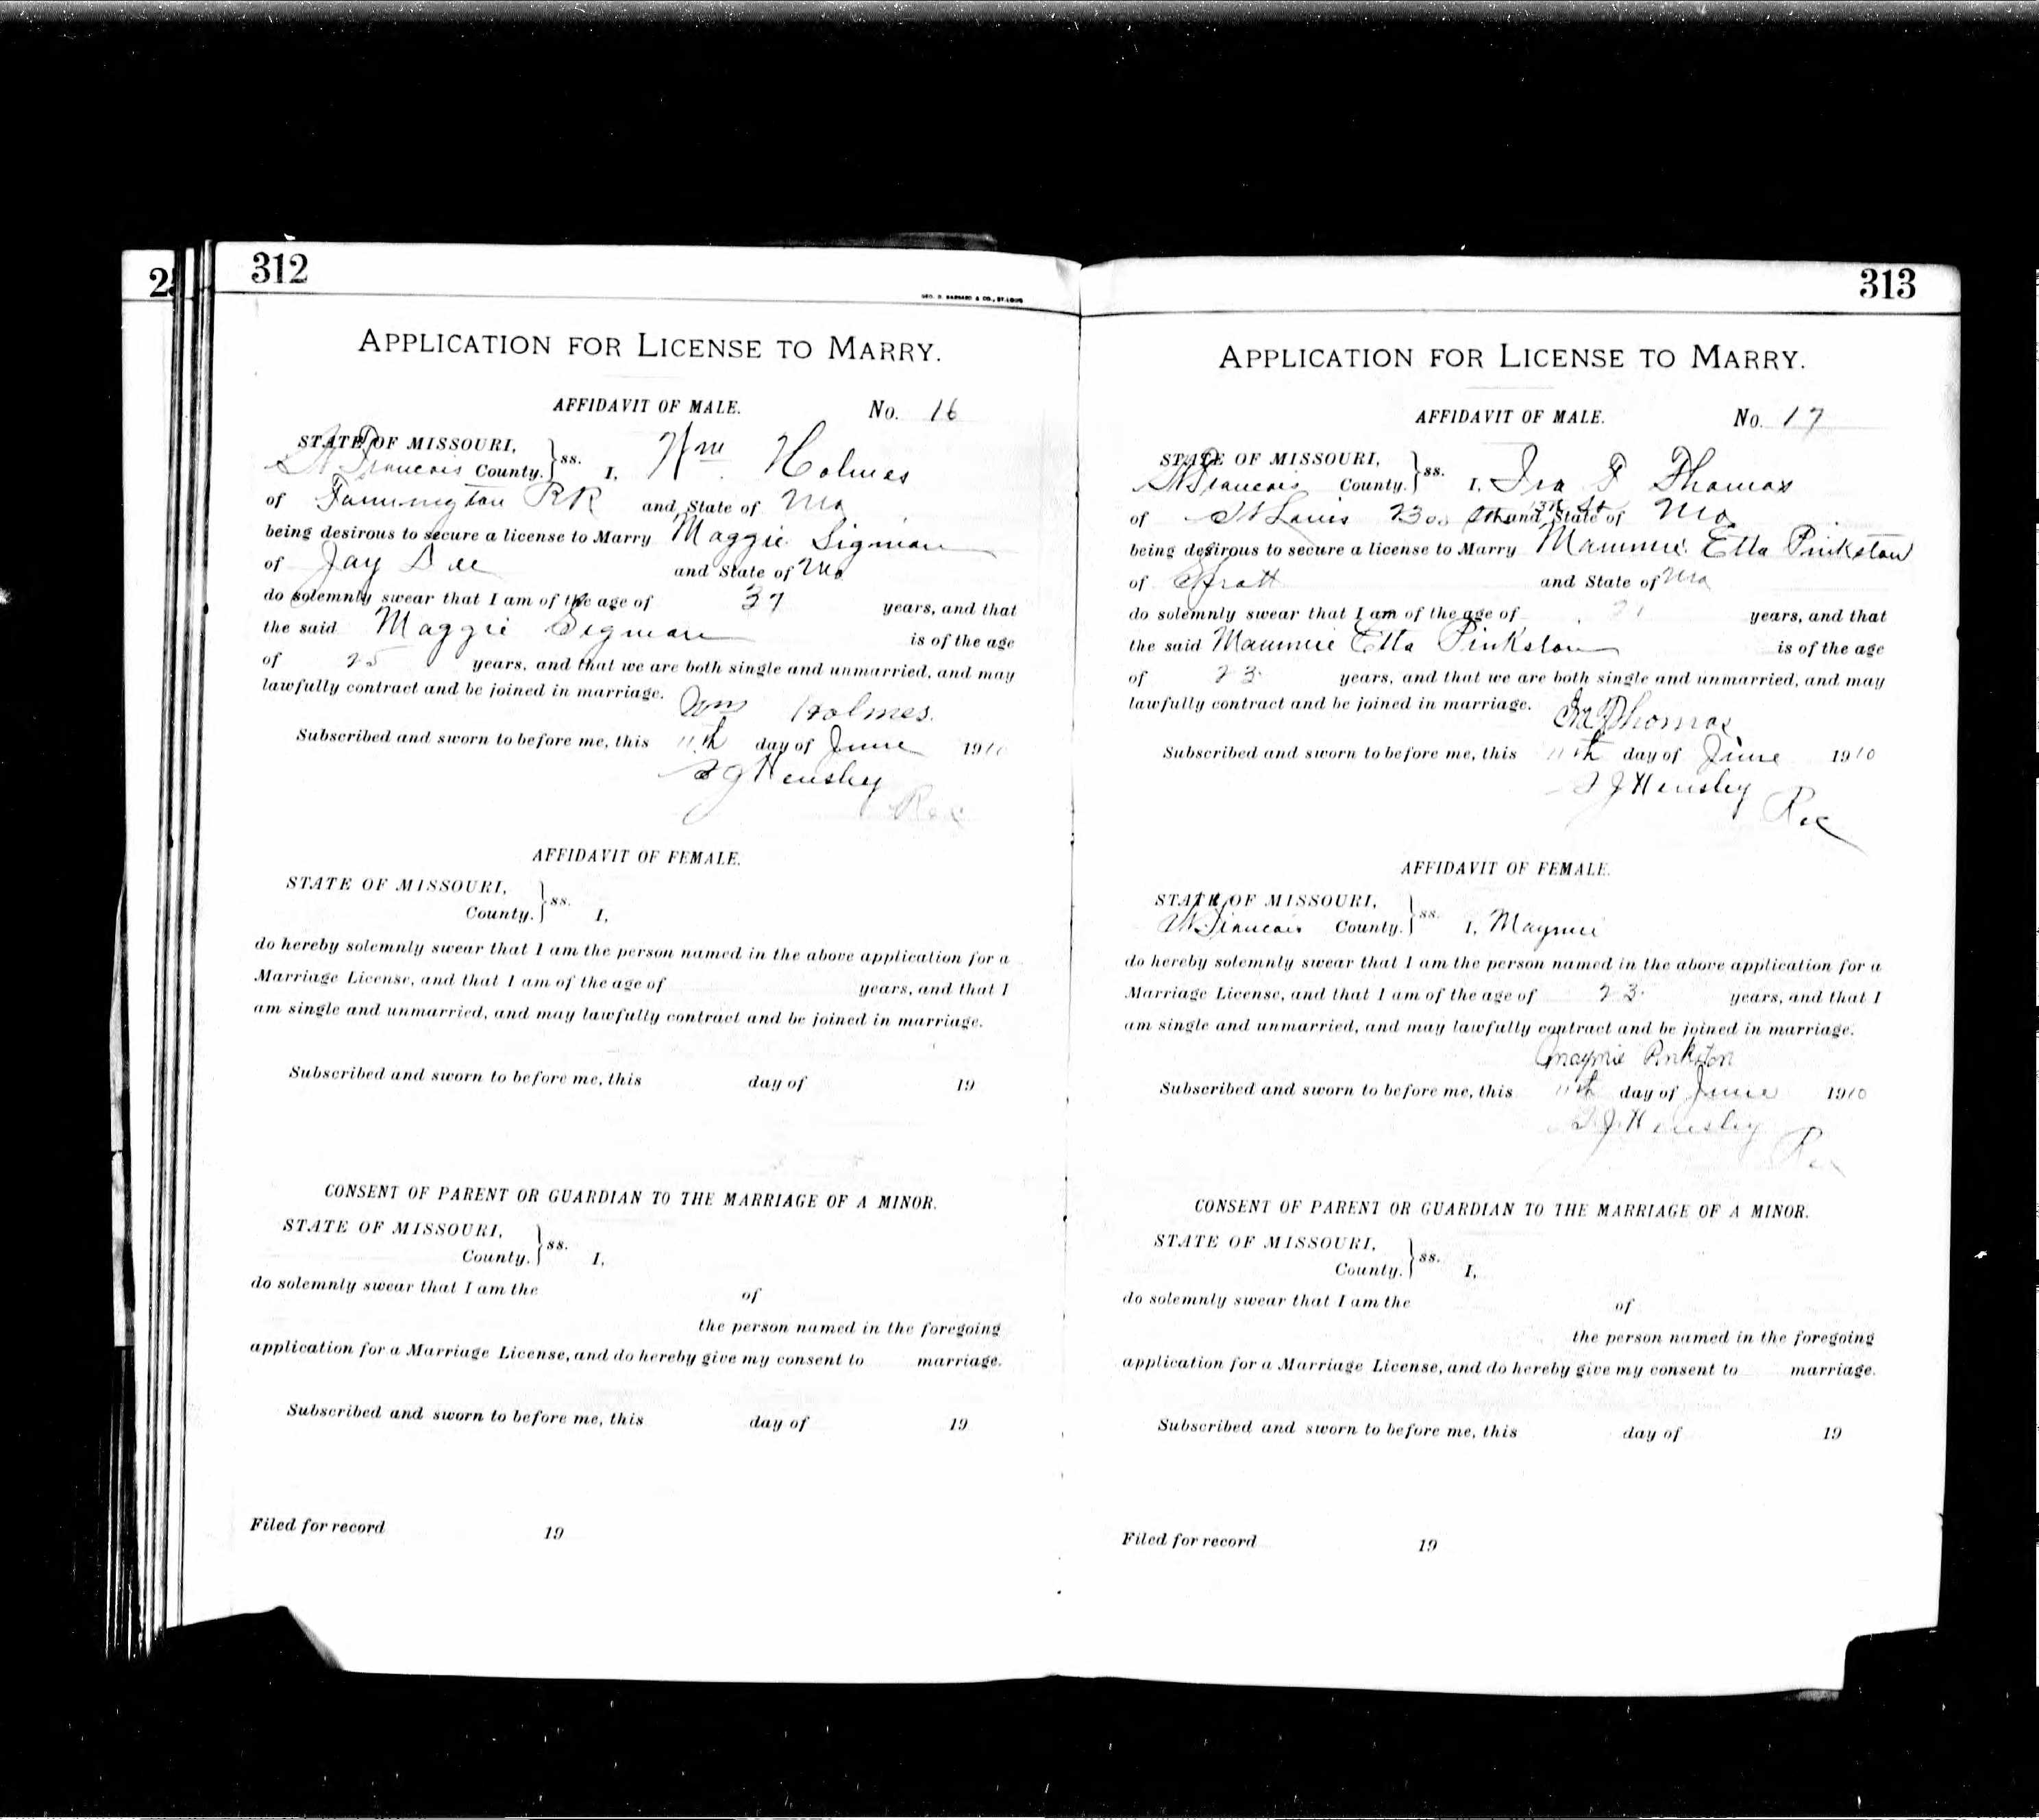 312
GEO. D. BARNARD & CO., ST. LOUIS
APPLICATION FOR LICENSE TO MARRY.
AFFIDAVIT OF MALE. No. 16
STATE OF MISSOURI,
St Francois County. } ss. I, Wm Holmes
of Farmington RR and State of Mo
being desirous to secure a license to Marry Maggie Sigman
of Jay Dee and State of Mo
do solemnly swear that I am of the age of 37 years, and that
the said Maggie Sigman is of the age
of 25 years, and that we are both single and unmarried, and may
lawfully contract and be joined in marriage.
Wm Holmes.
Subscribed and sworn to before me, this 11th day of June 1910
T J Hensley
Rec
AFFIDAVIT OF FEMALE.
STATE OF MISSOURI,
County. } ss. I,
do hereby solemnly swear that I am the person named in the above application for a
Marriage License, and that I am of the age of years, and that I
am single and unmarried, and may lawfully contract and be joined in marriage.
Subscribed and sworn to before me, this day of 19
CONSENT OF PARENT OR GUARDIAN TO THE MARRIAGE OF A MINOR.
STATE OF MISSOURI,
County. } ss. I,
do solemnly swear that I am the of
the person named in the foregoing
application for a Marriage License, and do hereby give my consent to marriage.
Subscribed and sworn to before me, this day of 19
Filed for record 19
313
APPLICATION FOR LICENSE TO MARRY.
AFFIDAVIT OF MALE. No. 17
STATE OF MISSOURI,
St Francois County. } ss. I, Ira F Thomas
of St Louis 2300 and State of Mo
being desirous to secure a license to Marry Mammie Etta Pinkston
of and State of Mo
do solemnly swear that I am of the age of 21 years, and that
the said Mammie Etta Pinkston is of the age
of 23 years, and that we are both single and unmarried, and may
lawfully contract and be joined in marriage.
Ira F Thomas
Subscribed and sworn to before me, this 11th day of June 1910
T J Hensley
Rec
AFFIDAVIT OF FEMALE.
STATE OF MISSOURI,
St Francois County. } ss. I, Maymie
do hereby solemnly swear that I am the person named in the above application for a
Marriage License, and that I am of the age of 23 years, and that I
am single and unmarried, and may lawfully contract and be joined in marriage.
Maymie Pinkston
Subscribed and sworn to before me, this 11th day of June 1910
T J Hensley
Rec
CONSENT OF PARENT OR GUARDIAN TO THE MARRIAGE OF A MINOR.
STATE OF MISSOURI,
County. } ss. I,
do solemnly swear that I am the of
the person named in the foregoing
application for a Marriage License, and do hereby give my consent to marriage.
Subscribed and sworn to before me, this day of 19
Filed for record 19